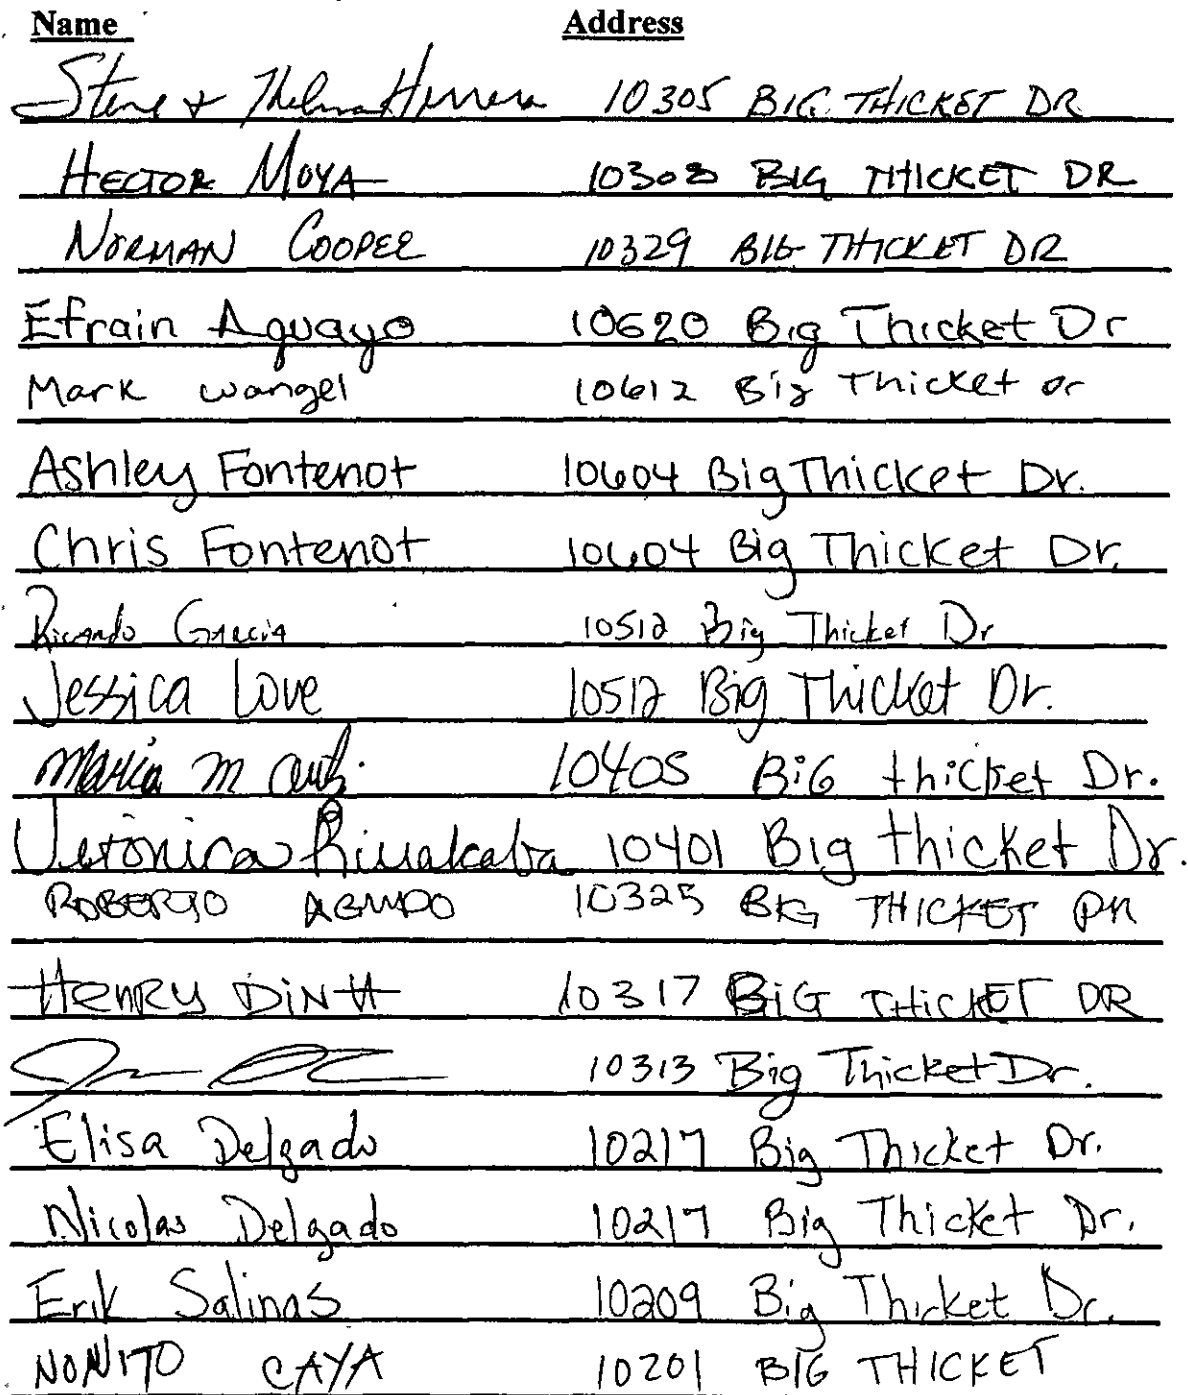 Name Address
Steve & Thelma Herrera 10305 BIG THICKET DR
HECTOR MOYA 10308 BIG THICKET DR
NORMAN COOPER 10329 BIG THICKET DR
Efrain Aguayo 10620 Big Thicket Dr
Mark Wangel 10612 Big Thicket Dr
Ashley Fontenot 10604 Big Thicket Dr.
Chris Fontenot 10604 Big Thicket Dr.
Ricardo Garcia 10512 Big Thicket Dr
Jessica Love 10512 Big Thicket Dr.
Maria M 10405 BiG thicket Dr.
Veronica 10401 Big thicket Dr.
ROBERTO 10325 BIG THICKET DR
HENRY DINH 10317 BiG THICKET DR
10313 Big Thicket Dr.
Elisa Delgado 10217 Big Thicket Dr.
Nicolas Delgado 10217 Big Thicket Dr.
Erik Salinas 10209 Big Thicket Dr.
NONITO CAYA 10201 BIG THICKET